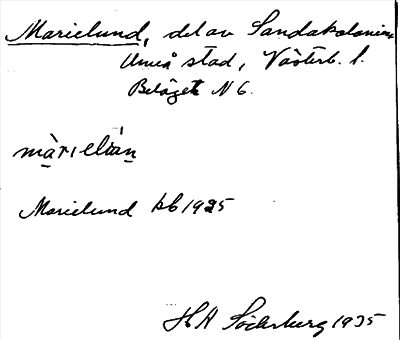 Marielund, del av Sandakolonien
Umeå stad, Västerb. l.
Beläget N 6.
màrielún
Marielund kb 1925
H A Söderberg 1935